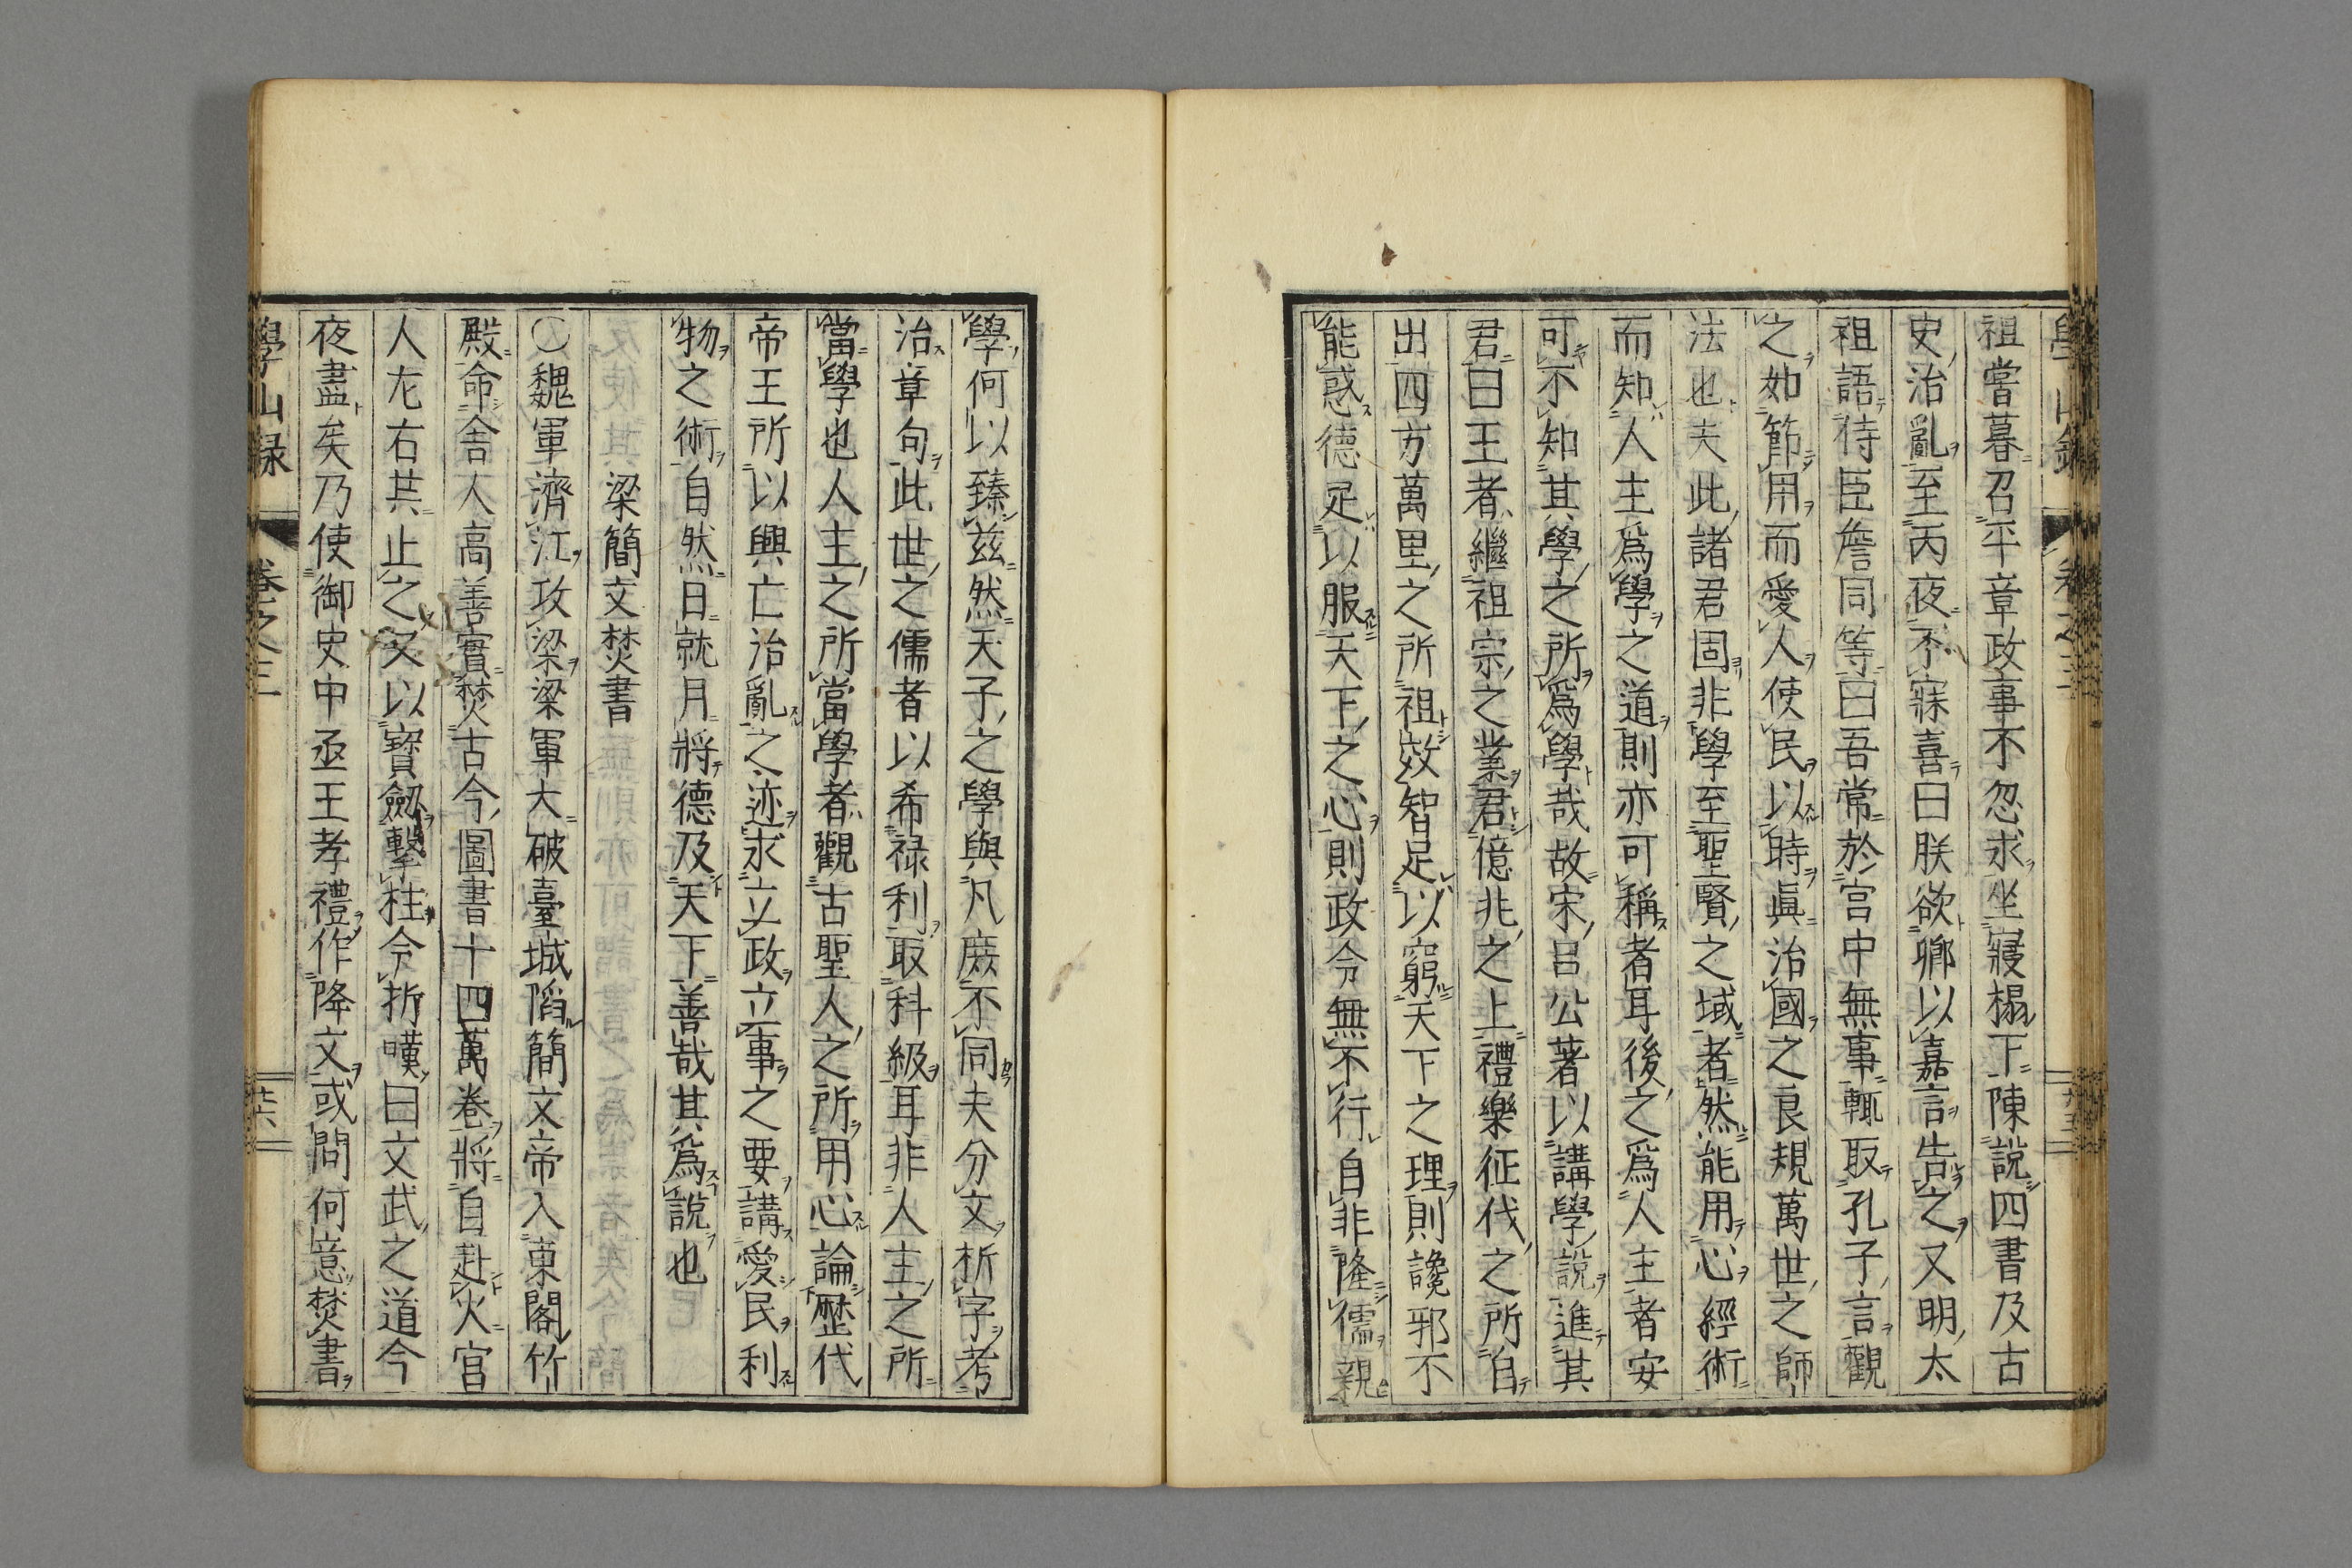 學山録 卷之三
祖嘗暮召平章政事不忽求坐寢榻下陳説四書及古
史治亂至丙夜不寐喜曰朕欲卿以嘉言告之又明太
祖語侍臣詹同等曰吾常於宫中無事輒取孔子言觀
之如節用而愛人使民以時眞治國之良規萬世之師
法也夫此諸君固非學至聖賢之域者然能用心經術
而知人主爲學之道則亦可稱者耳後之爲人主者安
可不知其學之所爲學哉故宋呂公著以講學説進其
君曰王者繼祖宗之業君億兆之上禮樂征伐之所自
出四方萬里之所祖效智足以窮天下之理則讒邪不
能惑德足以服天下之心則政令無不行自非隆儒親
學何以臻兹然天子之學與凡庶不同夫分文析字考
治章句此世之儒者以希禄利取科級耳非人主之所
當學也人主之所當學者觀古聖人之所用心論歷代
帝王所以興亡治亂之迹求立政立事之要講愛民利
物之術自然日就月將德及天下善哉其爲説也
梁簡文焚書
〇魏軍濟江攻梁梁軍大破臺城陷簡文帝入東閣竹
殿命舍人高善寳焚古今圖書十四萬卷將自赴火宫
人左右共止之又以寳劔擊柱令折嘆曰文武之道今
夜盡矣乃使御史中丞王孝禮作降文或問何意焚書
學山録 卷之三 廿六